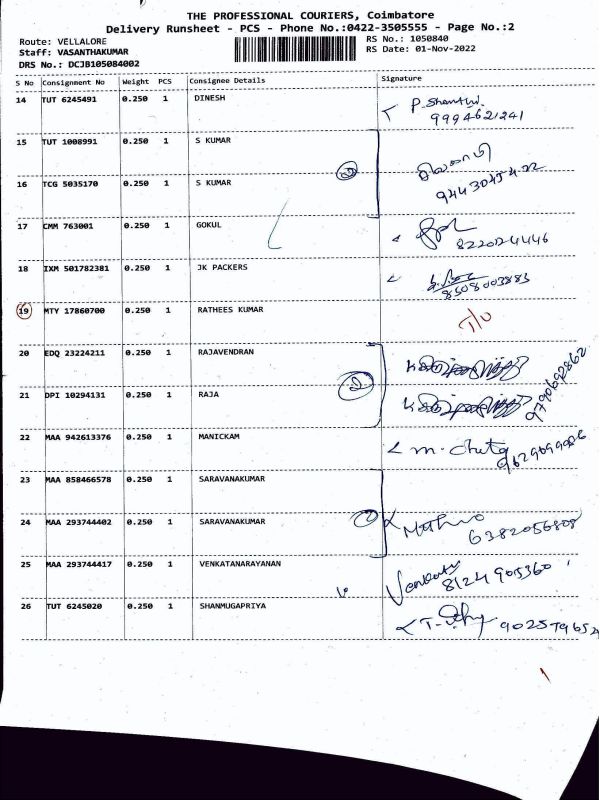 THE PROFESSIONAL COURIERS, Coimbatore
Delivery Runsheet - PCS - Phone No.:0422-3505555 - Page No.:2
Route: VELLALORE RS No.: 1050840
Staff: VASANTHAKUMAR RS Date: 01-Nov-2022
DRS No.: DCJB105084002
S No Consignment No Weight PCS Consignee Details Signature
14 TUT 6245491 0.250 1 DINESH P. Shanthi
9994621241
15 TUT 1008991 0.250 1 S KUMAR
16 TCG 5035170 0.250 1 S KUMAR 2
17 CMM 763001 0.250 1 GOKUL
8220124446
18 IXM 501782381 0.250 1 JK PACKERS
8508003883
19 MTY 17860700 0.250 1 RATHEES KUMAR T/O
20 EDQ 23224211 0.250 1 RAJAVENDRAN
21 DPI 10294131 0.250 1 RAJA 2 9790692862
22 MAA 942613376 0.250 1 MANICKAM
23 MAA 858466578 0.250 1 SARAVANAKUMAR
24 MAA 293744402 0.250 1 SARAVANAKUMAR
6382056808
25 MAA 293744417 0.250 1 VENKATANARAYANAN
8124905360
26 TUT 6245020 0.250 1 SHANMUGAPRIYA